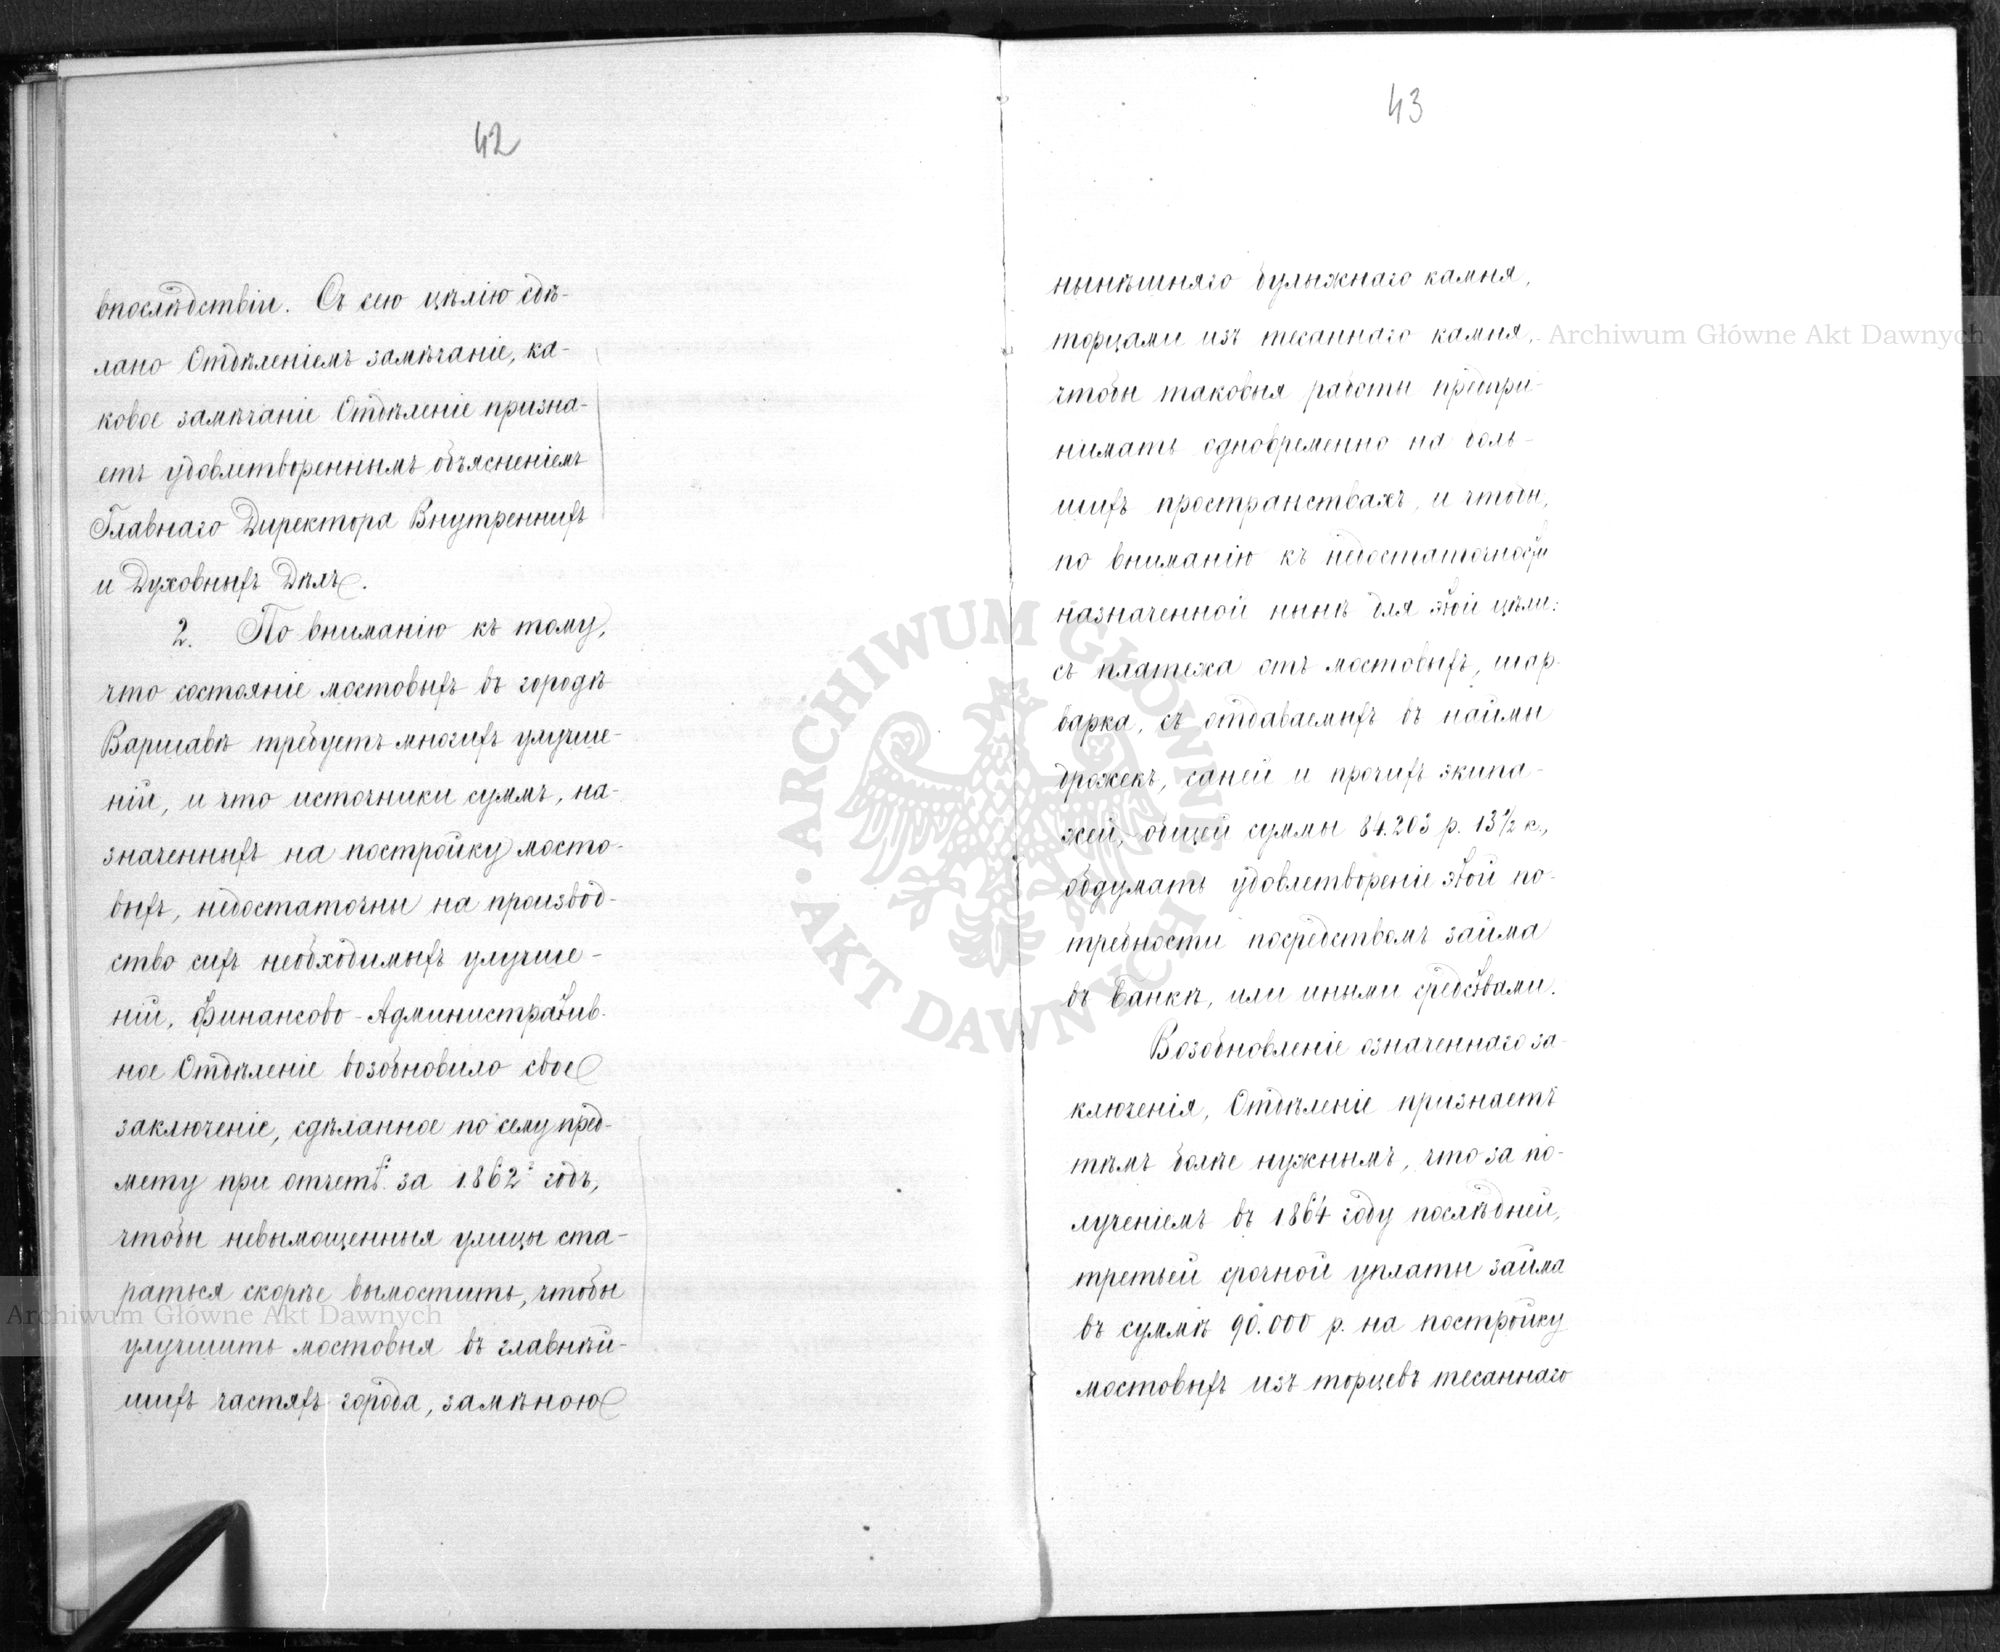 42
впослѣдствіи. Съ сею цѣлію сдѣ-
лано Отдѣленіемъ замѣчаніе, ка-
ковое замѣчаніе Отдѣленіе призна-
етъ удовлетвореннымъ объясненіемъ
Главнаго Директора Внутреннихъ
и Духовныхъ Дѣлъ.
2. По вниманію къ тому,
что состояніе мостовыхъ въ городѣ
Варшавѣ требуетъ многихъ улучше-
ній, и что источники суммъ, на-
значенныхъ на постройку мосто-
выхъ, недостаточны на производ-
ство сихъ необходимыхъ улучше-
ній, Финансово-Административ-
ное Отдѣленіе возобновило свое
заключеніе, сдѣланное по сему пред-
мету при отчетѣ за 1862й годъ,
чтобы невымощенныя улицы ста-
раться скорѣе вымостить, чтобы
улучшить мостовыя въ главнѣй-
шихъ частяхъ города, замѣною
43
нынѣшняго булыжнаго камня,
торцами изъ тесаннаго камня,
чтобы таковыя работы предпри-
нимать одновременно на боль-
шихъ пространствахъ, и чтобы,
по вниманію къ недостаточности
назначенной нынѣ для этой цѣли:
съ платежа отъ мостовыхъ, шар-
варка, съ отдаваемыхъ въ наймы
дрожекъ, саней и прочихъ экипа-
жей, общей суммы 84.203 р. 13½ к.,
обдумать удовлетвореніе этой по-
требности посредствомъ займа
въ Банкѣ, или иными средствами.
Возобновленіе означеннаго за-
ключенія, Отдѣленіе признаетъ
тѣмъ болѣе нужнымъ, что за по-
лученіемъ въ 1864 году послѣдней,
третьей срочной уплаты займа
въ суммѣ 90.000 р. на постройку
мостовыхъ изъ торцевъ тесаннаго
Archiwum Główne Akt Dawnych
Archiwum Główne Akt Dawnych
ARCHIWUM GŁÓWNE
AKT DAWNYCH